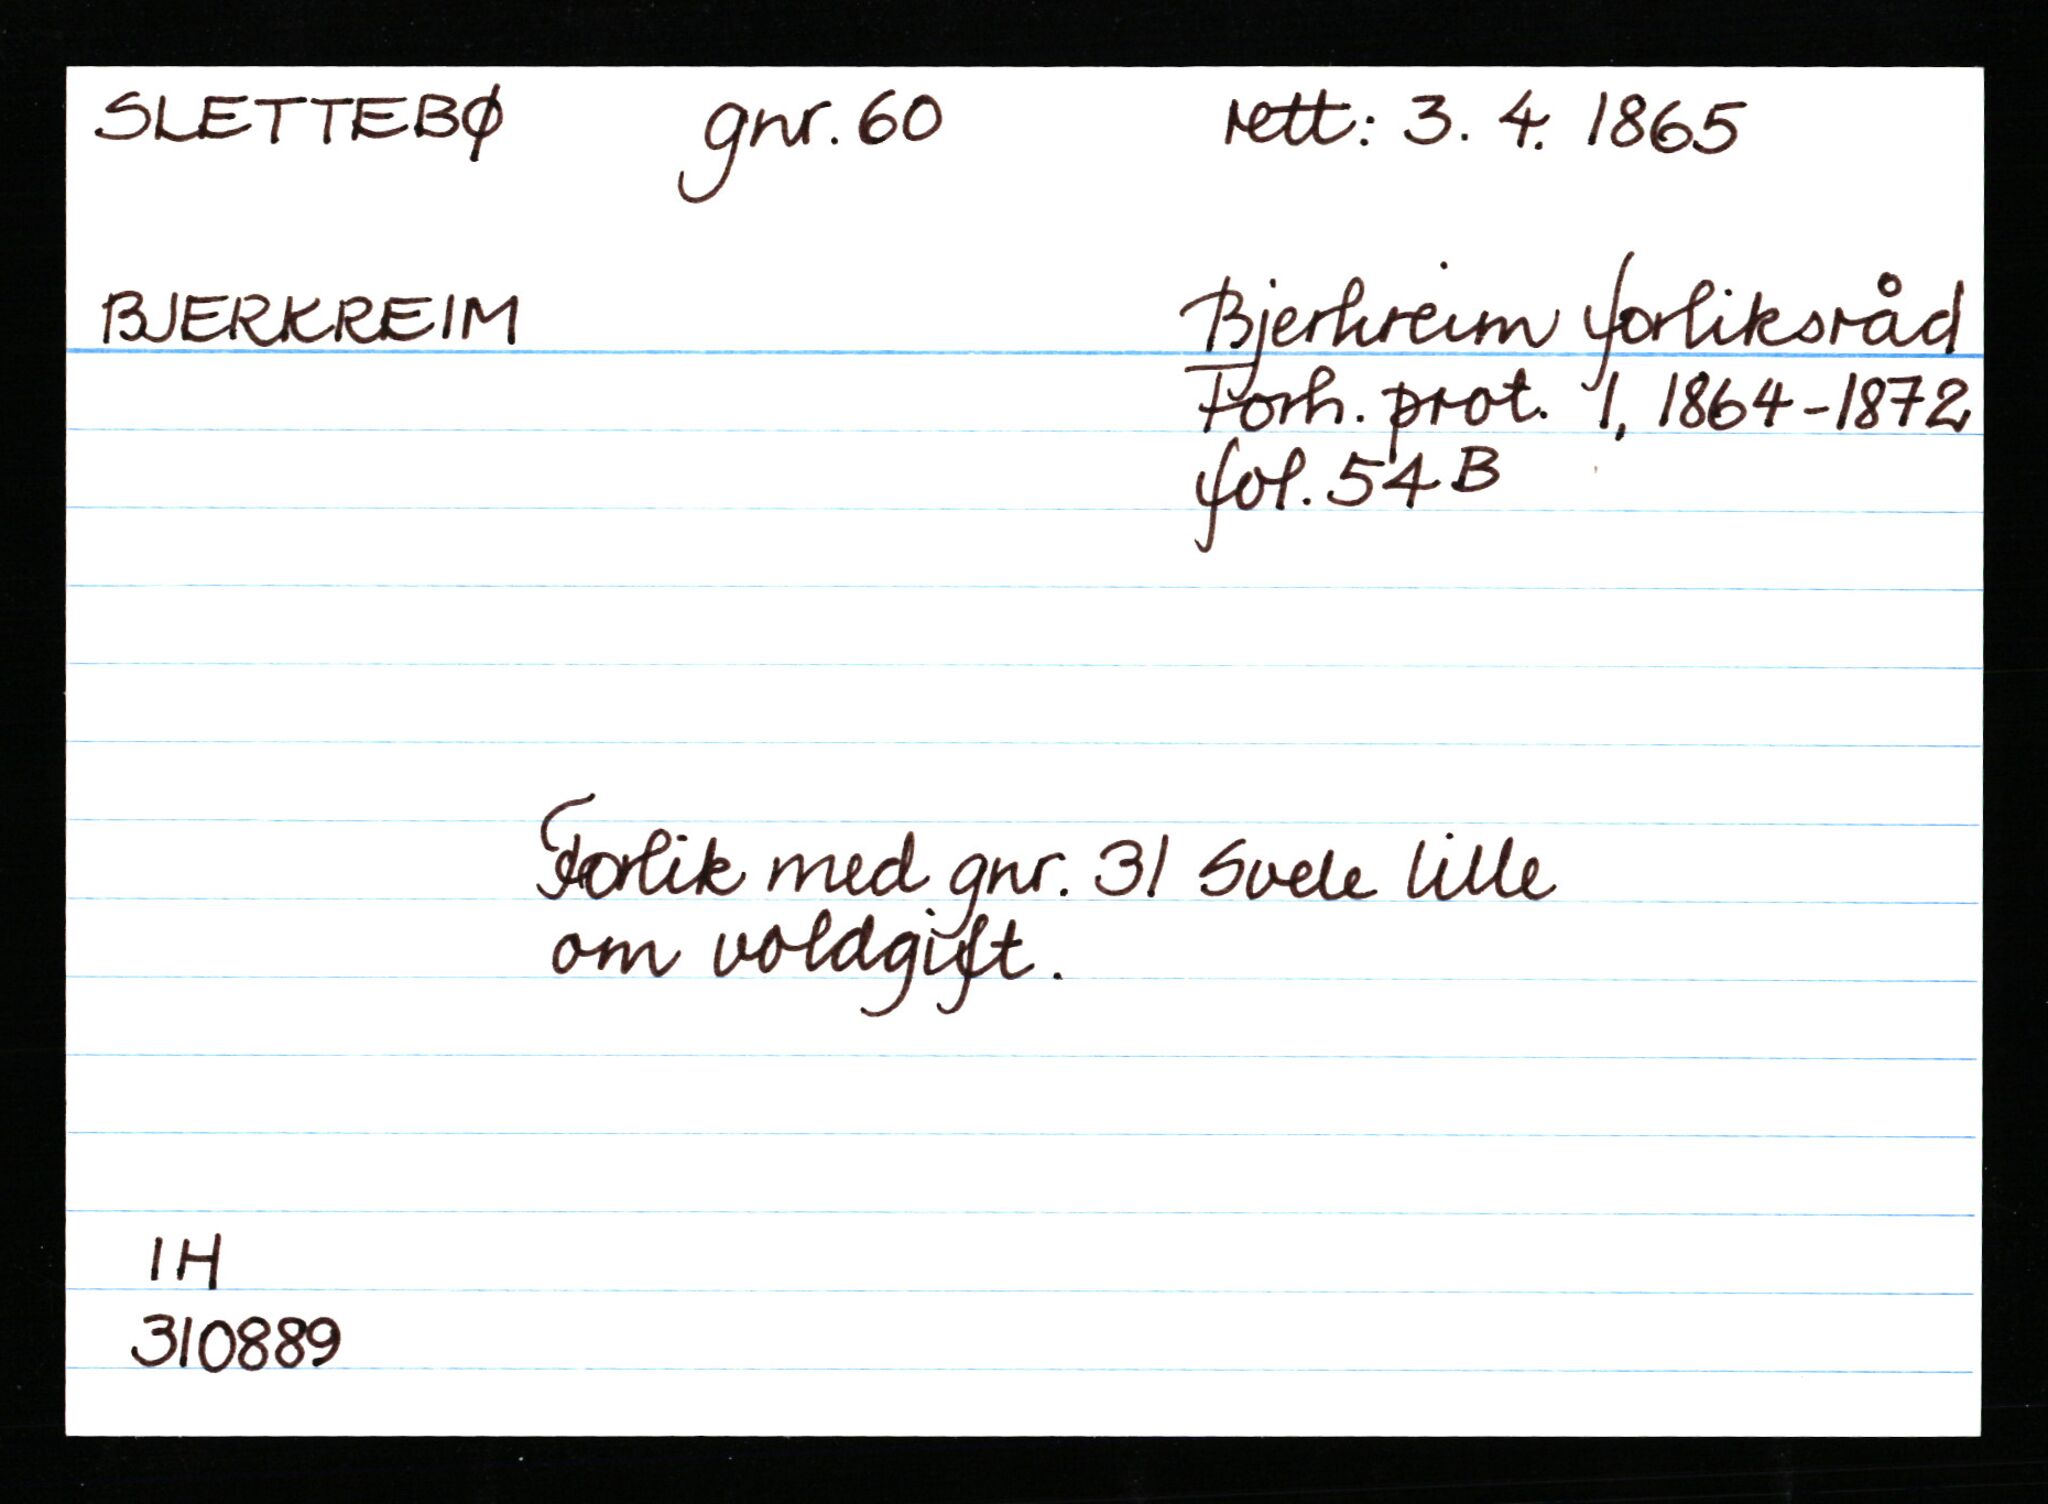 SLETTEBØ gnr. 60 rett: 3. 4. 1865
BJERKREIM Bjerkreim forliksråd
Forh. prot. 1, 1864-1872
fol. 54 B
Forlik med gnr. 31 Svele lille
om voldgift.
IH
310889